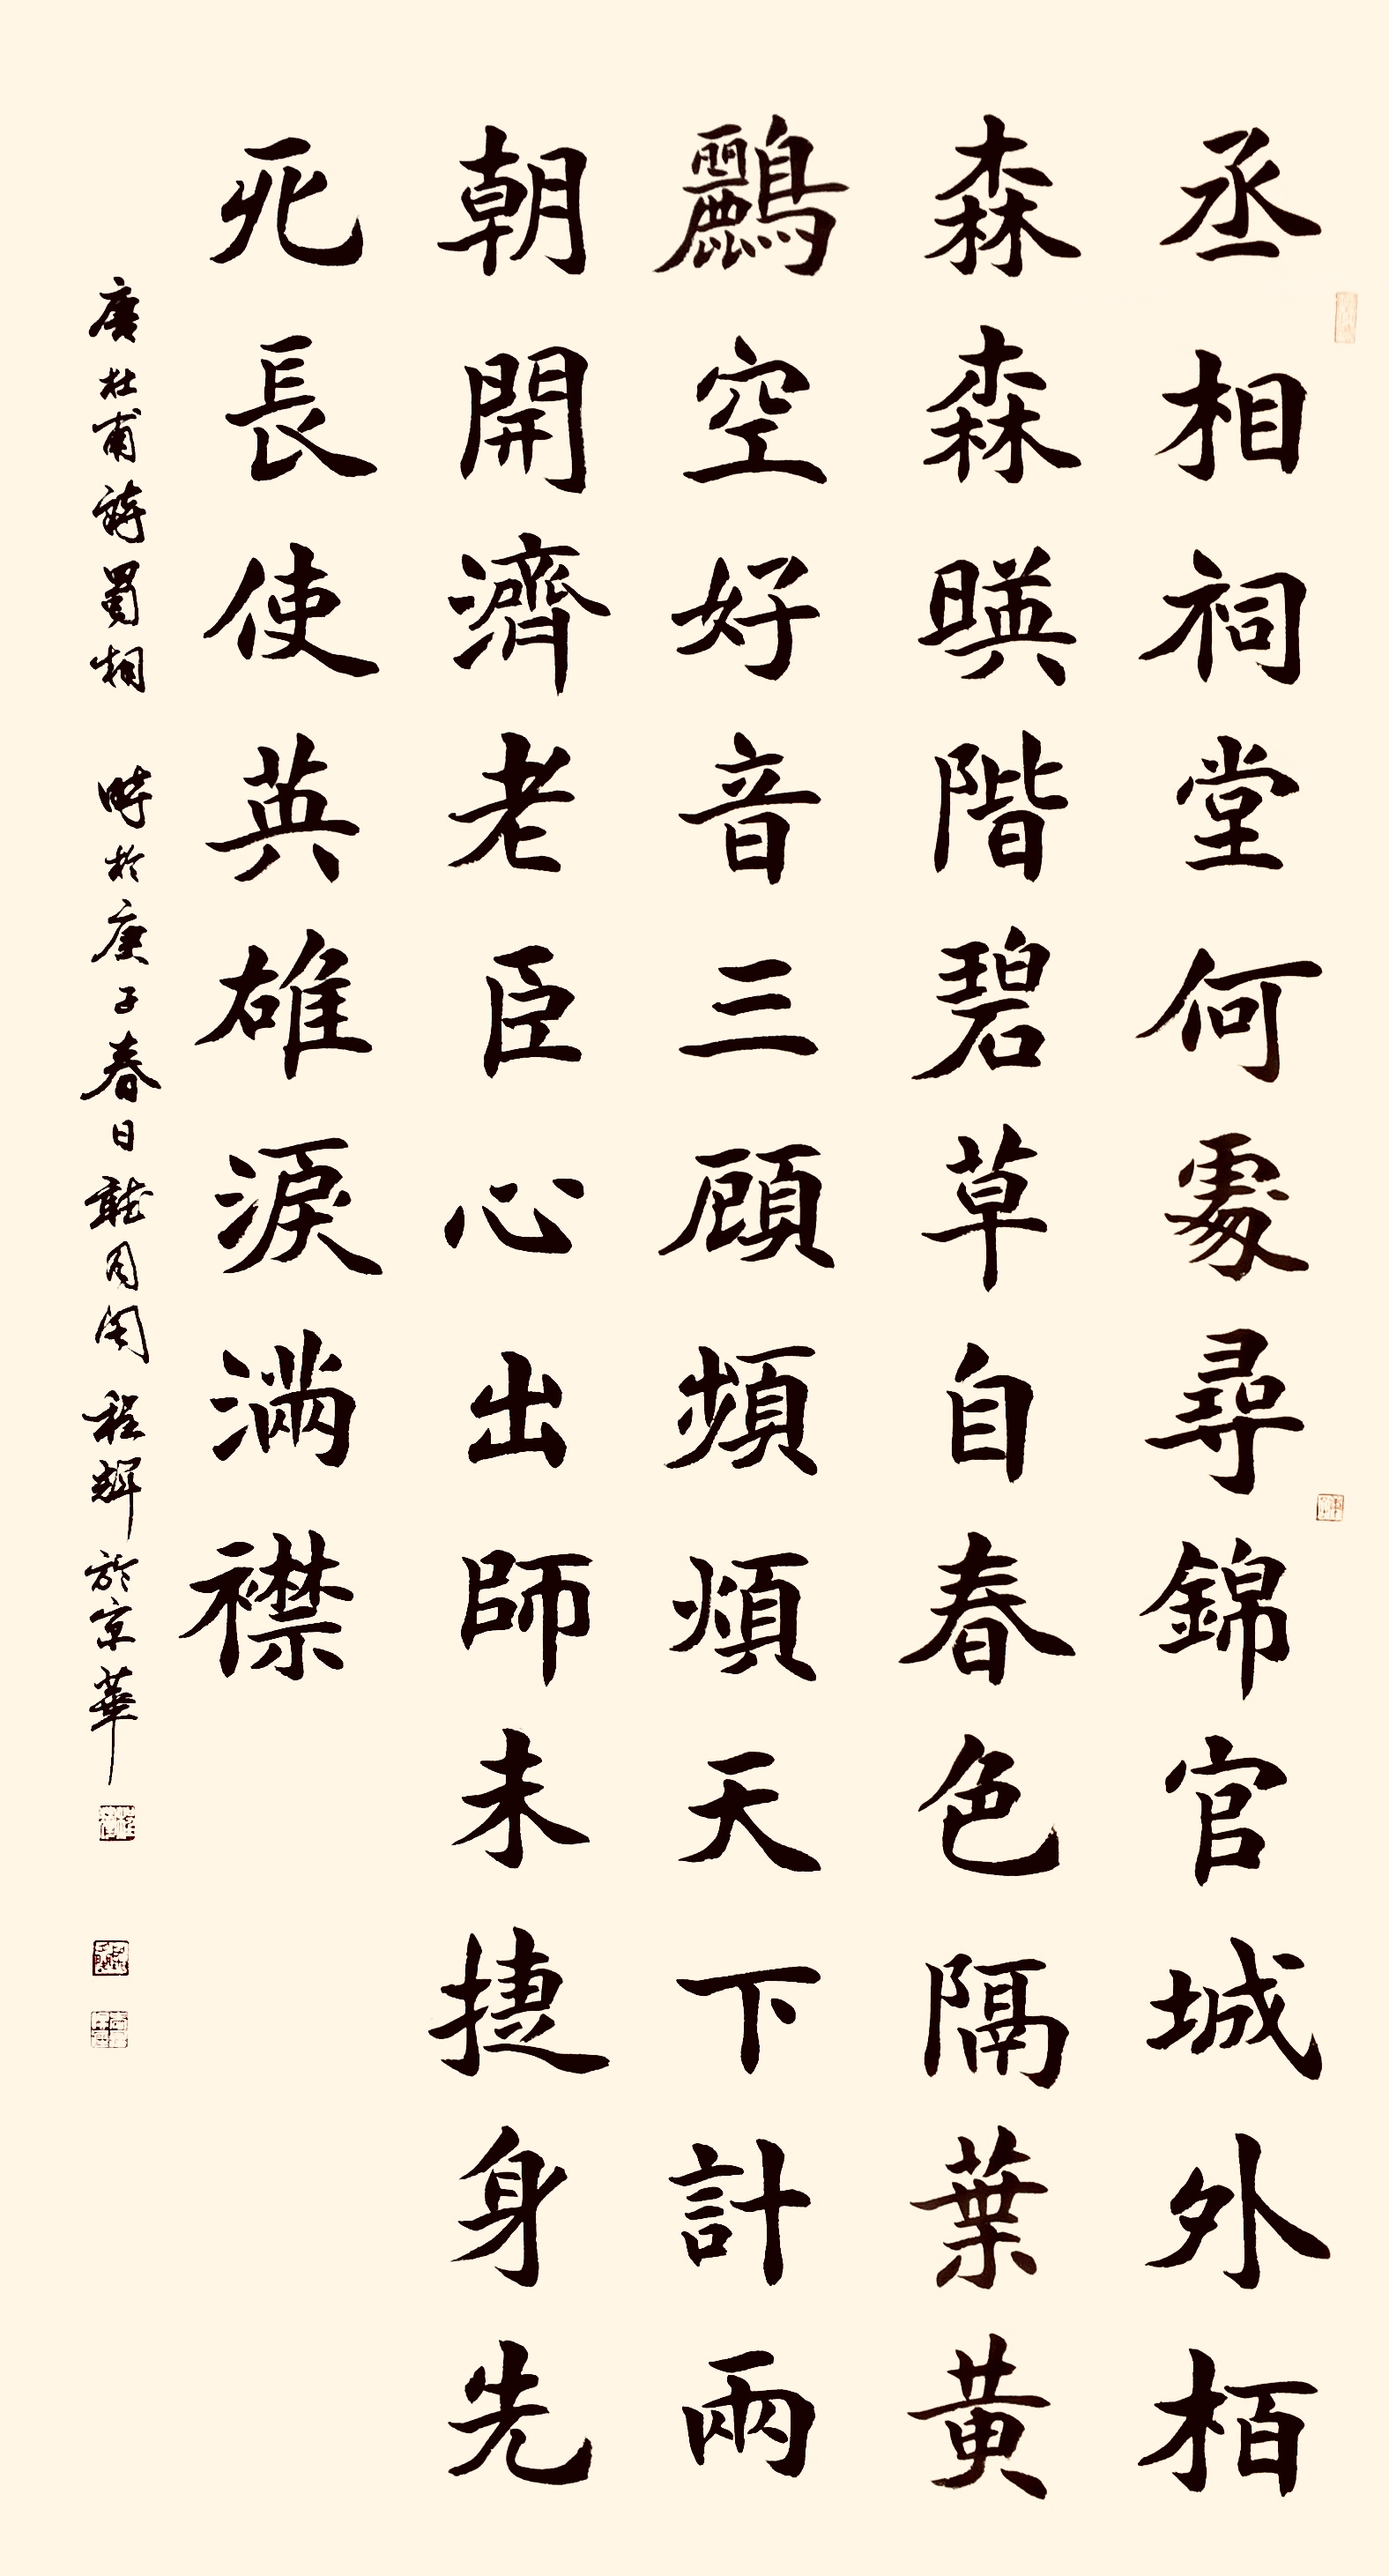 丞相祠堂何處尋錦官城外栢
森森暎階碧草自春色隔葉黄
鸝空好音三顧頻煩天下計兩
朝開濟老臣心出師未捷身先
死長使英雄淚滿襟
唐杜甫詩蜀相 時於庚子春日 月閣程輝於京華